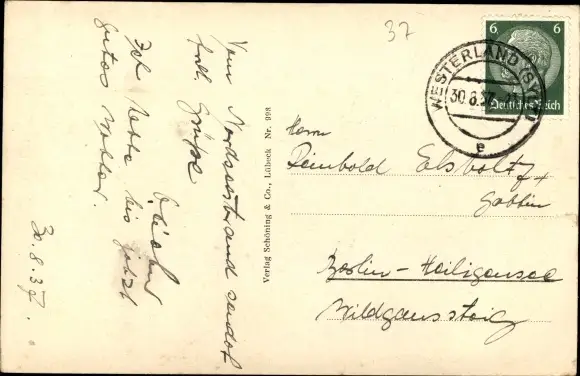 37
6 6
Deutsches Reich
WESTERLAND (SYLT)
30.8.37
e
Vom Nordseestrand sendet
frdl. Grüße
Ich hatte bis jetzt
gutes Wetter.
30.8.37.
Verlag Schöning & Co., Lübeck Nr. 998
Herrn
Reinhold Elsholtz
Gattin
Berlin - Heiligensee
Wildganssteig